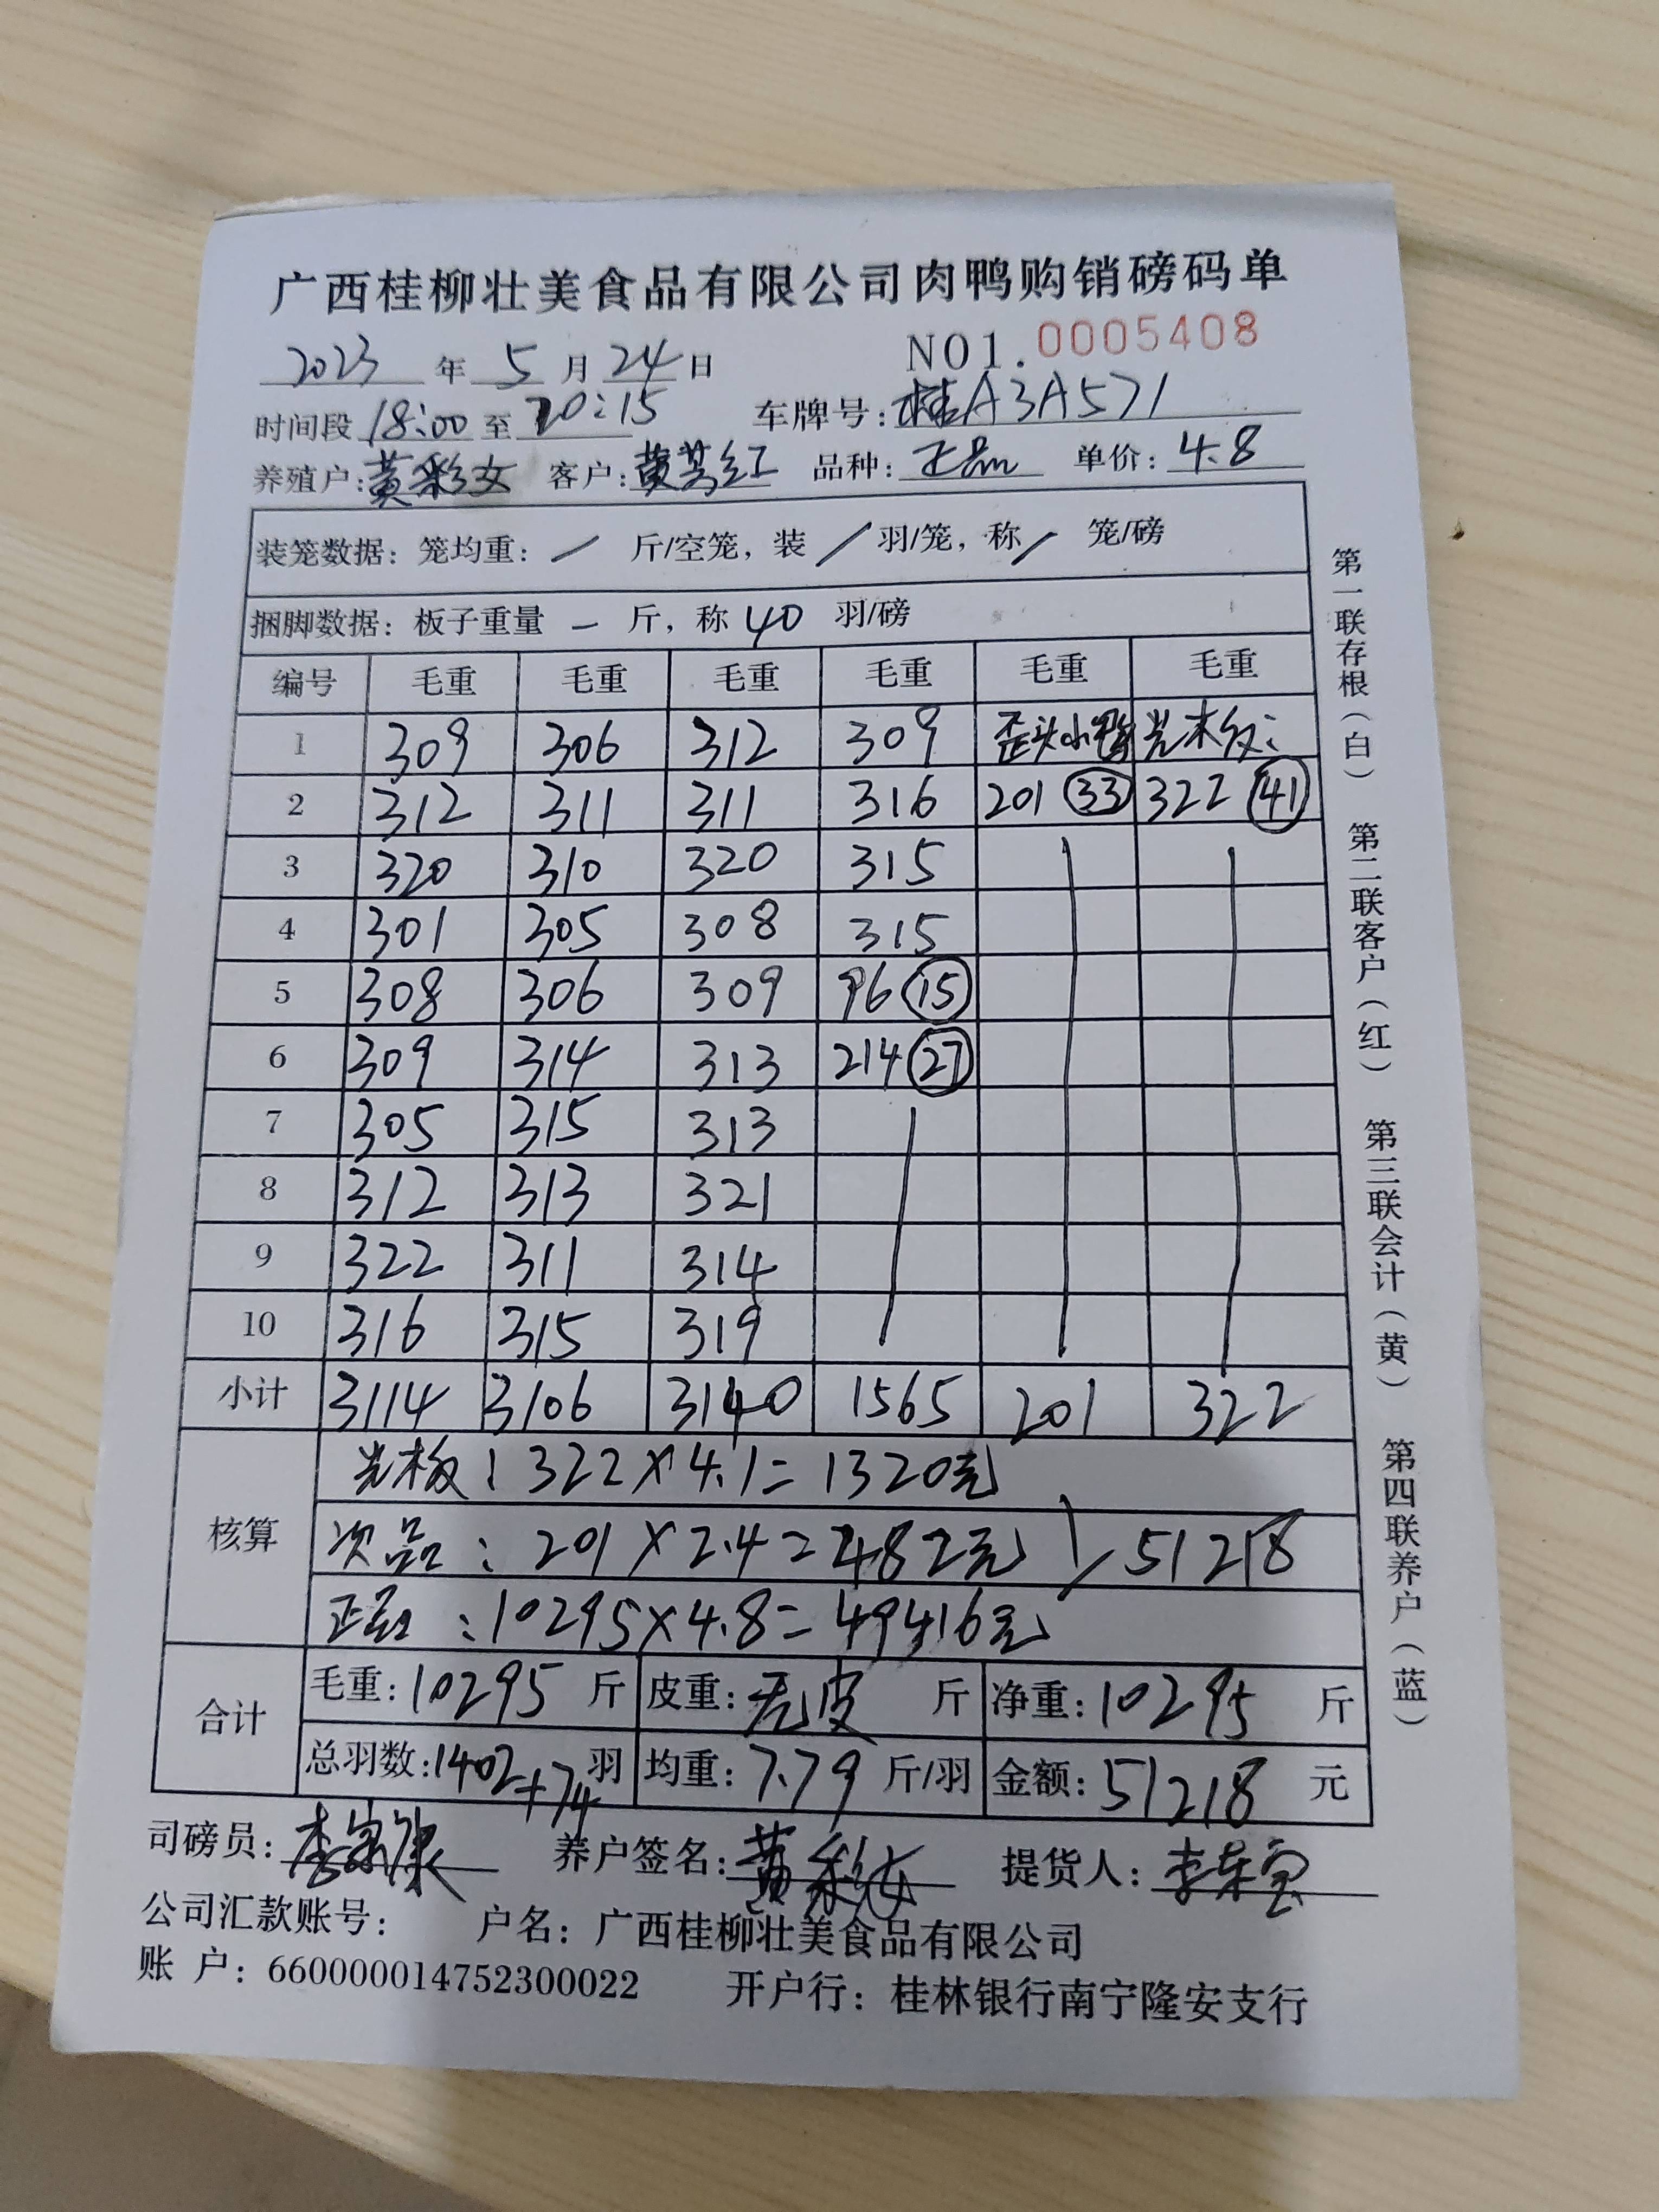 广西桂柳壮美食品有限公司肉鸭购销磅码单
2023 年 5 月 24 日 NO1. 0005408
时间段 18:00 至 20:15 车牌号: 桂A3A571
养殖户: 黄彩女 客户: 黄 红 品种: 正品 单价: 4.8
装笼数据: 笼均重: / 斤/空笼, 装 / 羽/笼, 称 / 笼/磅
捆脚数据: 板子重量 — 斤, 称 40 羽/磅
编号 毛重 毛重 毛重 毛重 毛重 毛重
1 309 306 312 309 歪头小鸭 光板:
2 312 311 311 316 201 33 322 41
3 320 310 320 315
4 301 305 308 315
5 308 306 309 96 15
6 309 314 313 214 27
7 305 315 313
8 312 313 321
9 322 311 314
10 316 315 319
小计 3114 3106 3140 1565 201 322
核算
光板: 322×4.1=1320元
次品: 201×2.4=482元 51218
正品: 10295×4.8=49416元
合计
毛重: 10295 斤 皮重: 无皮 斤 净重: 10295 斤
总羽数: 1402+74 羽 均重: 7.79 斤/羽 金额: 51218 元
司磅员: 李 康 养户签名: 黄彩女 提货人: 李
公司汇款账号: 户名: 广西桂柳壮美食品有限公司
账 户: 660000014752300022 开户行: 桂林银行南宁隆安支行
第一联存根(白) 第二联客户(红) 第三联会计(黄) 第四联养户(蓝)